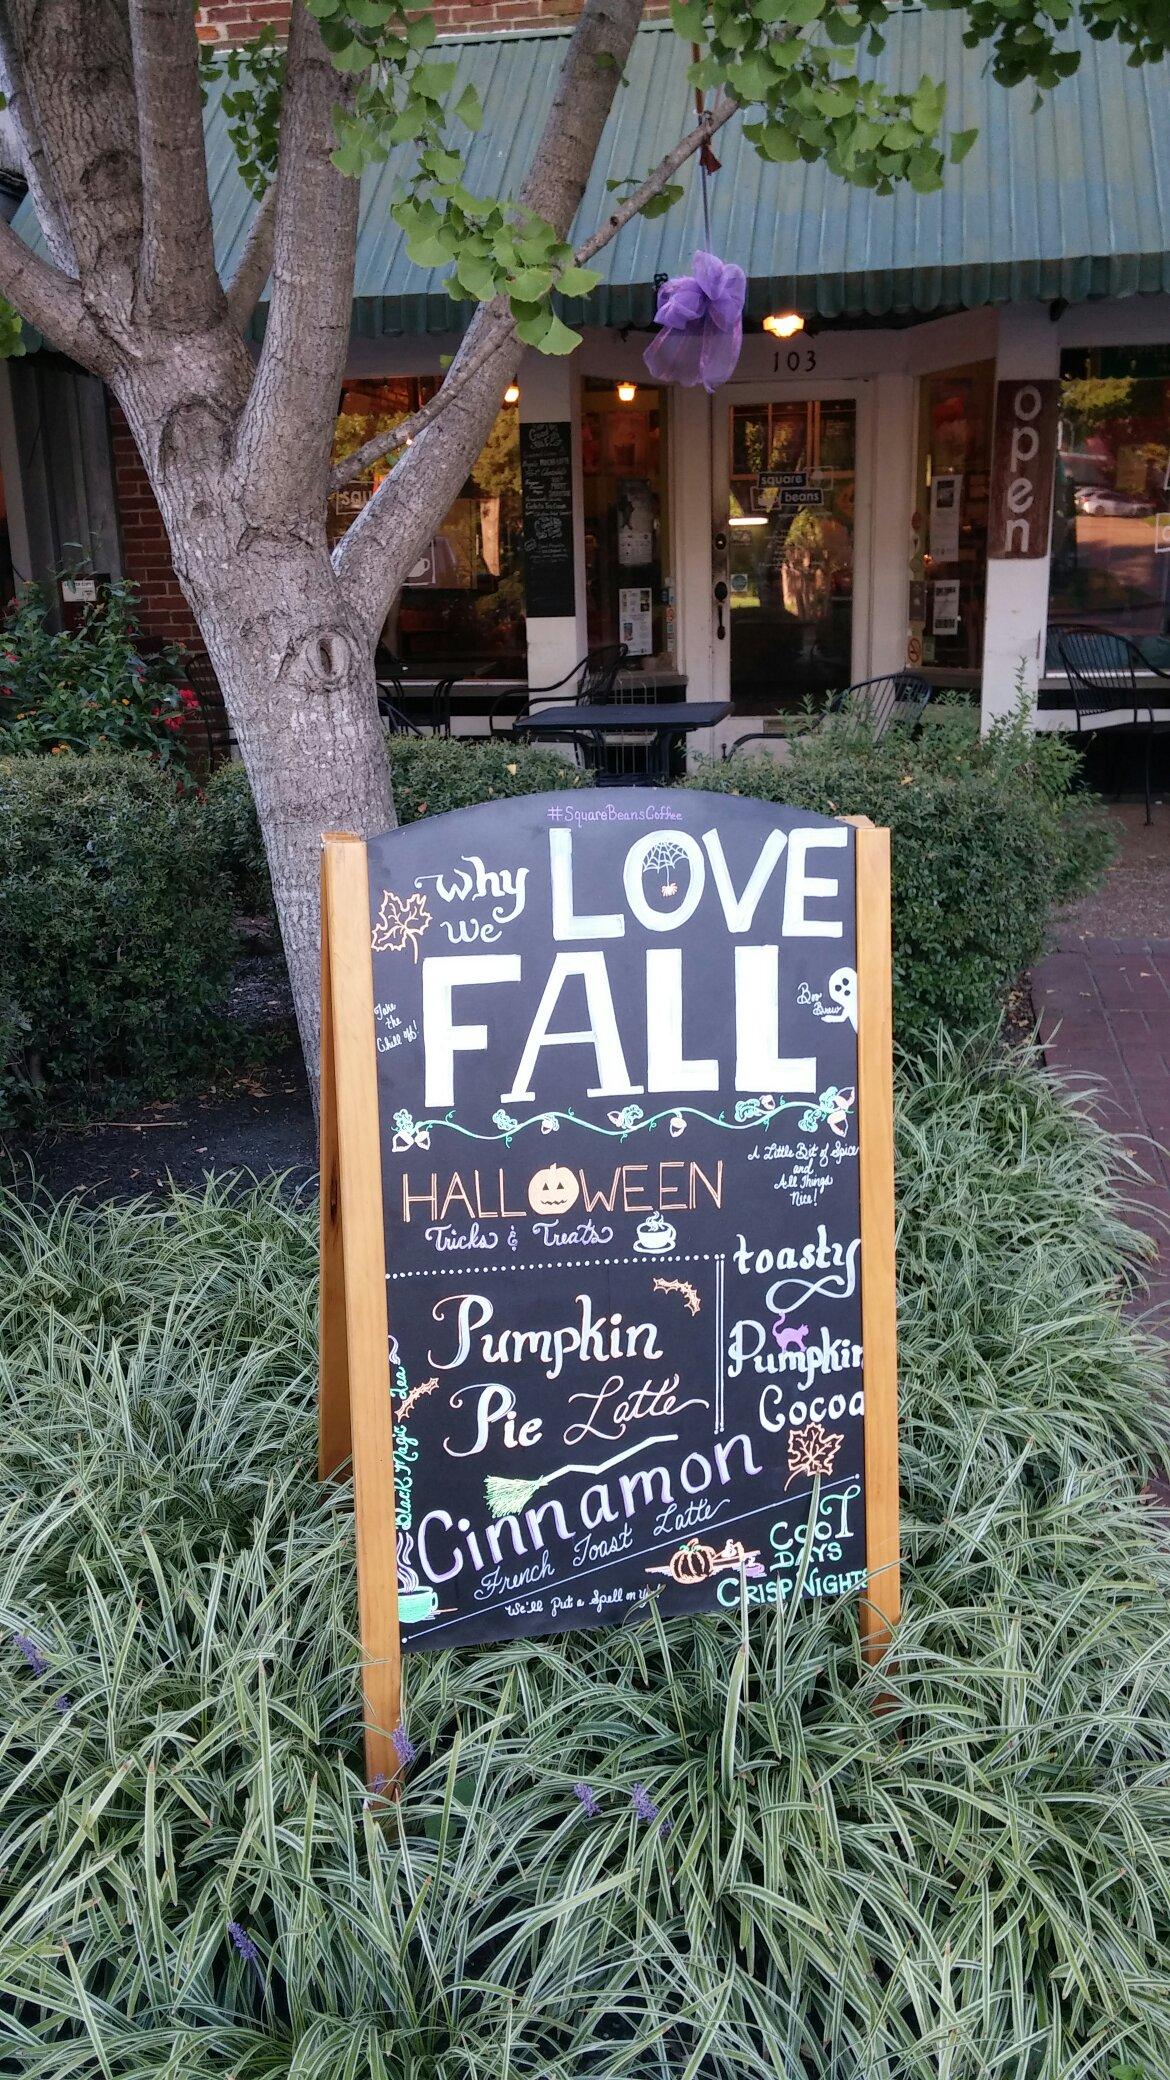 103
open
square
beans
squ
#SquareBeansCoffee
why
we
LOVE
FALL
Take
the
Chill off!
Boo
Brew
HALLOWEEN
Tricks & Treats
A Little Bit of Spice
and
All Things
Nice!
toasty
Pumpkin
Cocoa
Pumpkin
Pie Latte
Black Magic Tea
Cinnamon
French Toast Latte
We'll Put a Spell on You!
COOL
DAYS
CRISP NIGHTS